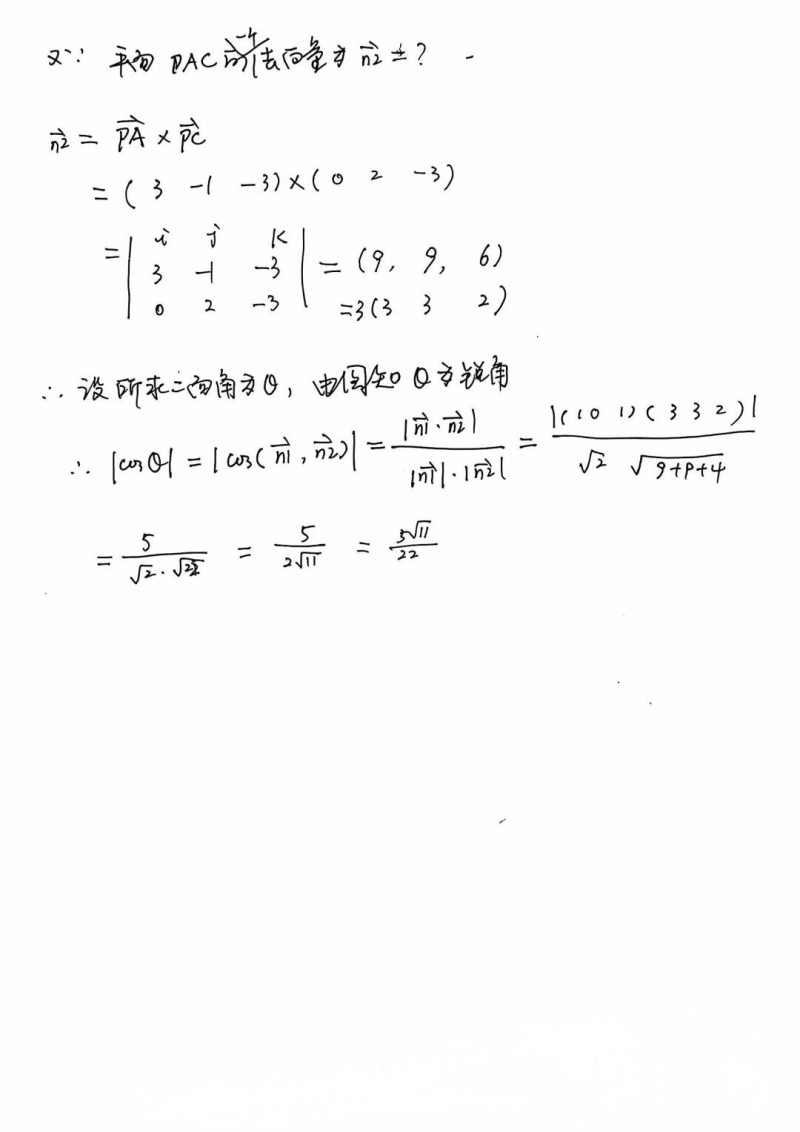 又∵ 平面 PAC 的一个法向量为 n2 = ?
n2 = PA × PC
= ( 3 -1 -3) × ( 0 2 -3)
= | i j k |
| 3 -1 -3 | = (9, 9, 6)
| 0 2 -3 | =3(3 3 2)
∴ 设所求二面角为θ, 由图知θ为锐角
∴ |cosθ| = |cos(n1, n2)| = |n1·n2| / |n1|·|n2| = |(1 0 1)(3 3 2)| / √2 √9+9+4
= 5 / √2·√22 = 5 / 2√11 = 5√11 / 22